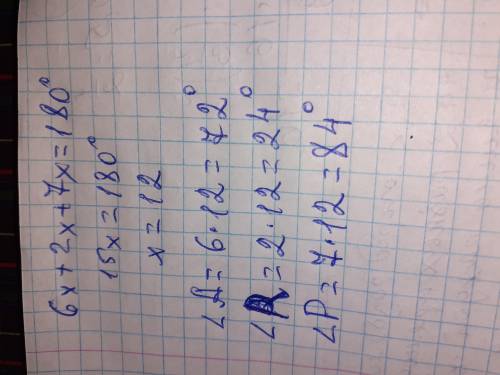 6x+2x+7x=180°
15x=180°
x=12
∠A=6·12=72°
∠R=2·12=24°
∠P=7·12=84°